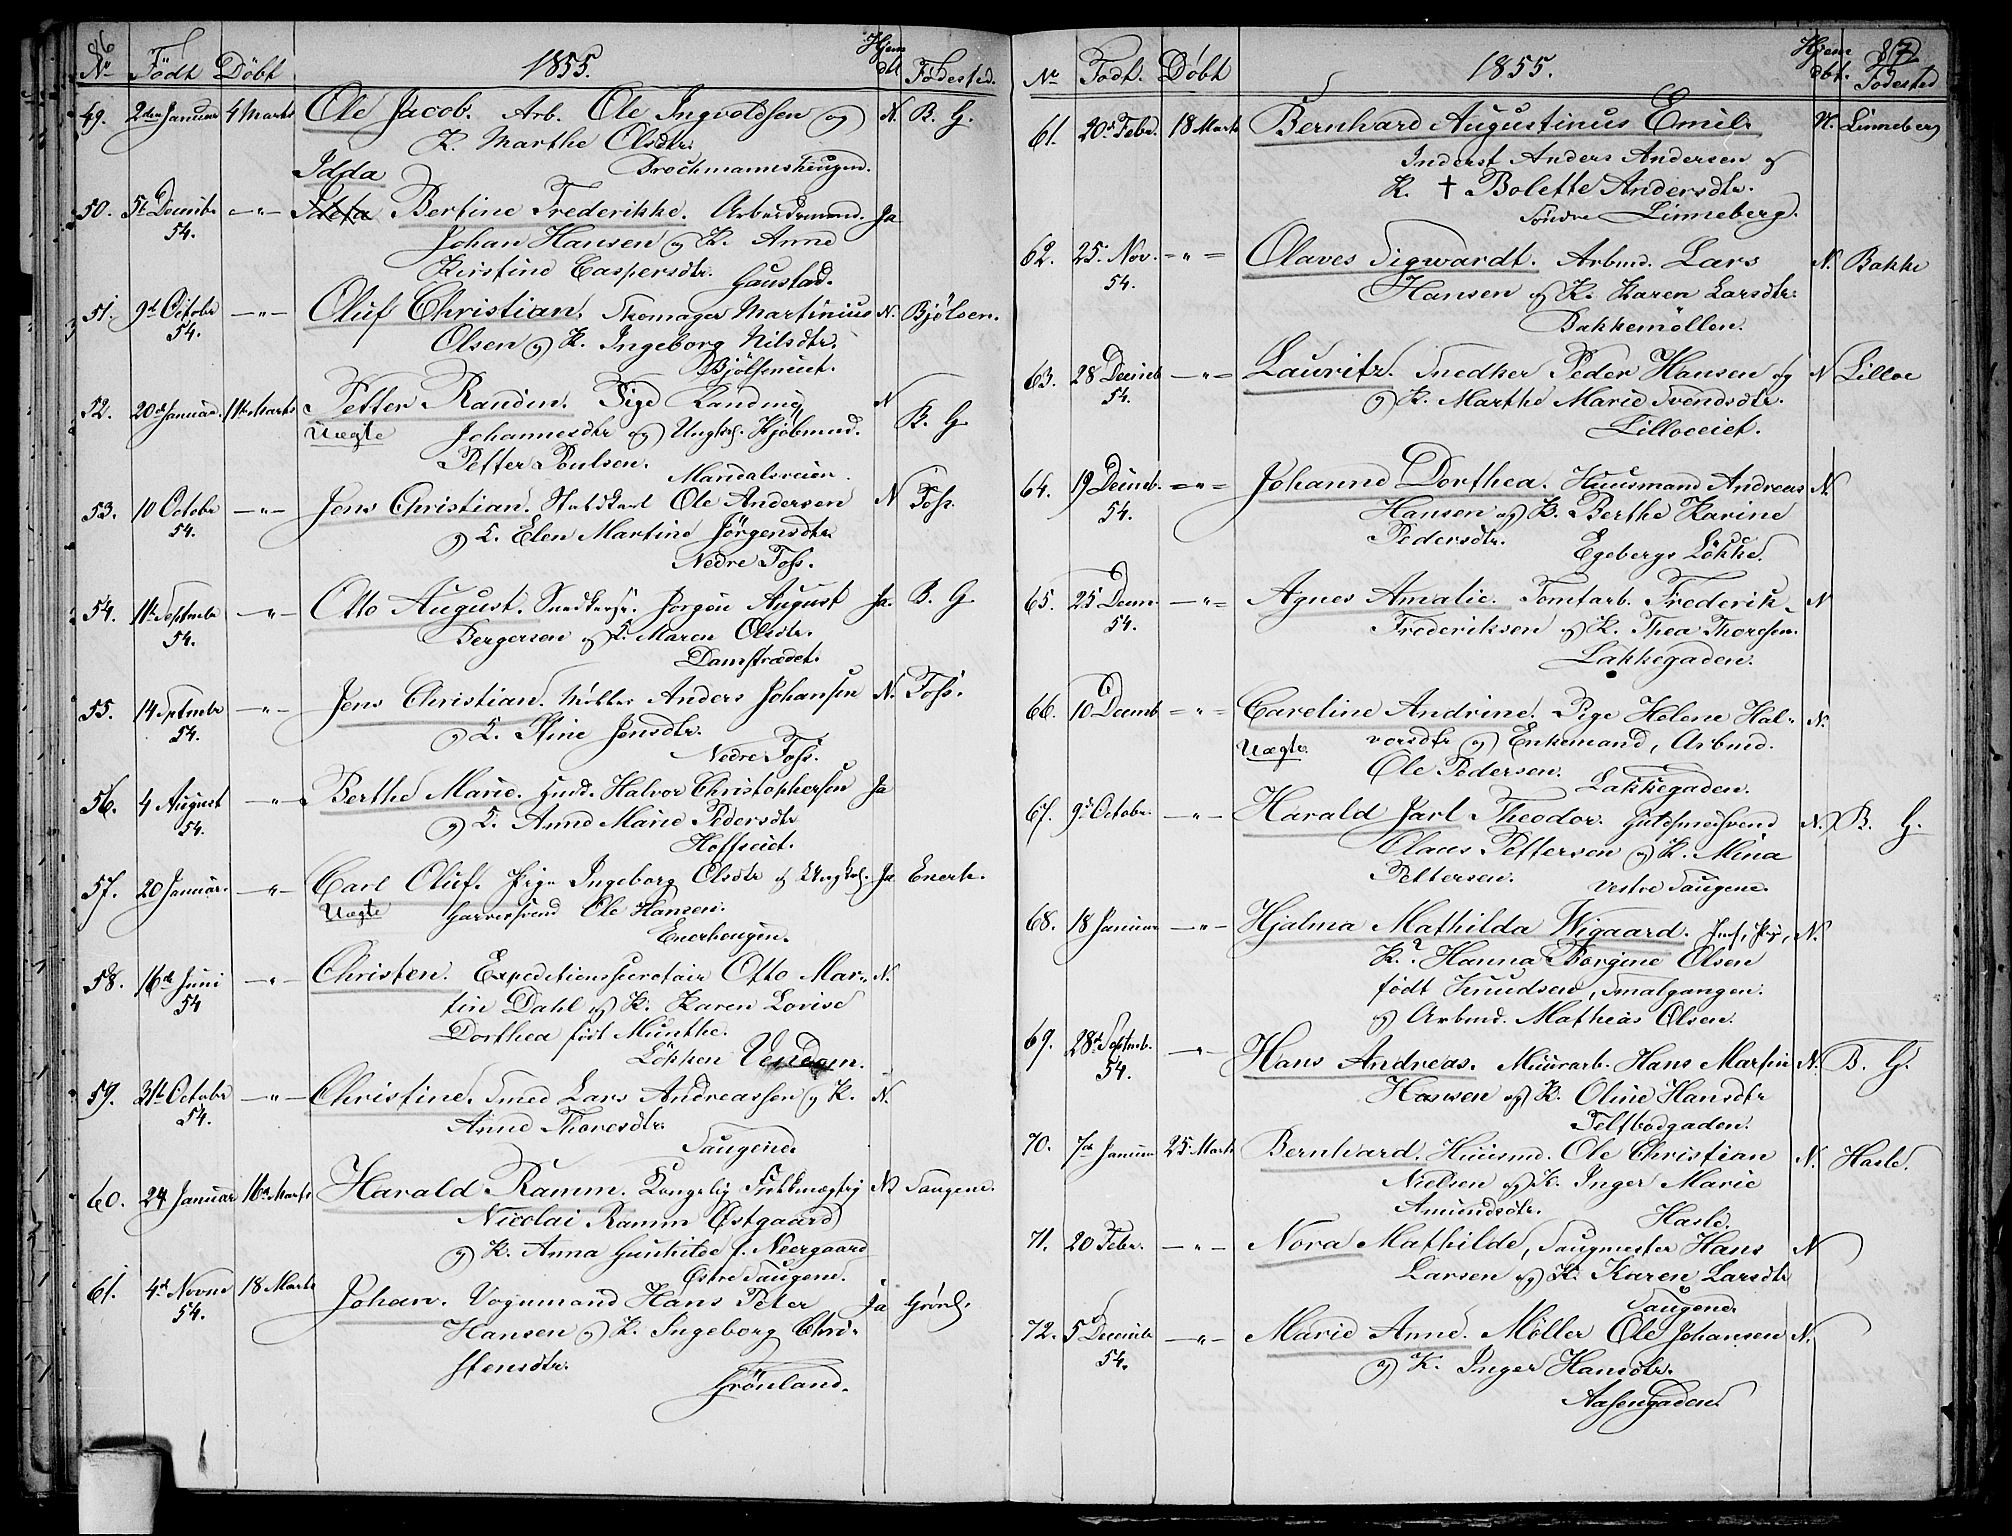 86
No Født Døbt 1855. Hjem dbt Fødested.
49. 2den Januar 4 Marts Ole Jacob. Arb. Ole Ingvoldsen og N. B. G.
K. Marthe Olsdtr.
Brochmannshougen.
Idda
50. 5te Decembr 54. -"- Bertine Frederikke. Arbeidsmand. Ja
Johan Hansen og K. Anne
Kirstine Caspersdtr. Gaustad.
51. 9de Octobr 54. -"- Oluf Christian. Skomager Martinius N. Bjølsen.
Olsen og K. Ingeborg Nilsdtr.
Bjølseneiet.
52. 20de Januar. 11te Marts Petter Randin. Pige Randine N B. G.
Uægte Johannesdtr og Ungk. Kjøbmd.
Petter Poulsen.
Mandalsveien.
53. 10 Octobr 54. -"- Jens Christian. Stald Karl Ole Andersen N Foss.
og K. Elen Martine Jörgensdtr
Nedre Foss.
54. 11te Septembr 54. -"- Otto August. Snedkersv. Jorgen August Ja. B. G.
Bergersen og K. Maren Olsdtr.
Damstrædet.
55. 14 Septembr 54. -"- Jens Christian. Møller Anders Johansen N. Foss.
og K. Stine Jensdtr.
Nedre Foss.
56. 4 August 54. -"- Berthe Marie. Huusmd. Halvor Christophersen Ja
og K. Anne Marie Pedersdtr
Hoffseiet.
57. 20 Januar. -"- Carl Oluf. Pige Ingeborg Olsdtr og Ungkarl. Ja Enerh.
Uægte Garversvend Ole Hansen.
Enerhougen.
58. 16de Juni 54 -"- Christen. Expeditionssecretair Otto Mar- N.
tin Dahl og K. Karen Lovise
Dorthea født Munthe.
Løkken Vendom.
59. 31te Octobr 54. -"- Christine. Smed Lars Andreassen og K. N.
Anne Thoresdtr.
Saugene
60. 24 Januar 16de Marts Harald Ramm. Kongelig Fuldmægtig N Saugene.
Nicolai Ramm Østgaard
og K. Anna Gunhilde f. Neergaard
Østre Saugene.
61. 4de Novbr 54. 18 Marts Johan. Vognmand Hans Peter Ja Grønl.
Hansen og K. Ingeborg Chri-
stensdtr.
Grönland.
87
No Født. Døbt 1855. Hjem dbt. Fødested
61. 20de Febr. 18 Marts Bernhard Augustinus Emil. N. Linneberg
Inderst Anders Andersen og
K. † Bolette Andersdtr.
Søndre Linneberg.
62. 25. Nov. 54. -"- Olaves Sigwardt. Arbmd. Lars N. Bakke
Hansen og K. Karen Larsdtr.
Bakkemöllen.
63. 28 Decemb 54. -"- Lauritz. Snedker Peder Hansen og N Lilloe
og K. Marthe Marie Svendsdtr.
Lilloeeiet.
64. 19 Decemb. 54. -"- Johanne Dorthea. Huusmand Andreas N.
Hansen og K. Berthe Karine
Pedersdtr. Egebergs Løkke.
65. 25 Decm. 54. -"- Agnes Amalie. Tomtarb. Frederik N
Frederiksen og K. Thea Thoresen.
Lakkegaden.
66. 10 Decemb -"- Caroline Andrine. Pige Helene Hal- N.
Uægte. vorsdtr og Enkemand, Arbmd.
Ole Pedersen. Lakkegaden.
67. 9de Octobr. -"- Harald Jarl Theodor. Guldsmedsvend N. B. G.
Olaus Pettersen og K. Mina
Pettersen. Vestre Saugene.
68. 18 Januar -"- Hjalma Mathilda Wigaard. N.
K.? Hanna Borgine Olsen
født Knudsen, Smalgangen.
og Arbmd. Mathias Olsen.
69. 28de Septemb. 54. -"- Hans Andreas. Muurarb. Hans Martin N. B. G.
Hansen og K. Oline Hansdtr
Feltbodgaden.
70. 7de Januar 25. Marts Bernhard. Huusmd. Ole Christian N. Hasle.
Nielsen og K. Inger Marie
Amundsdtr. Hasle.
71. 20 Febr. -"- Nora Mathilde, Saugmester Hans N
Larsen og K. Karen Larsdtr
Saugene.
72. 5 Decembr 54. -"- Marie Anne. Møller Ole Johansen N.
og K. Inger Hansdtr.
Aasengaden.